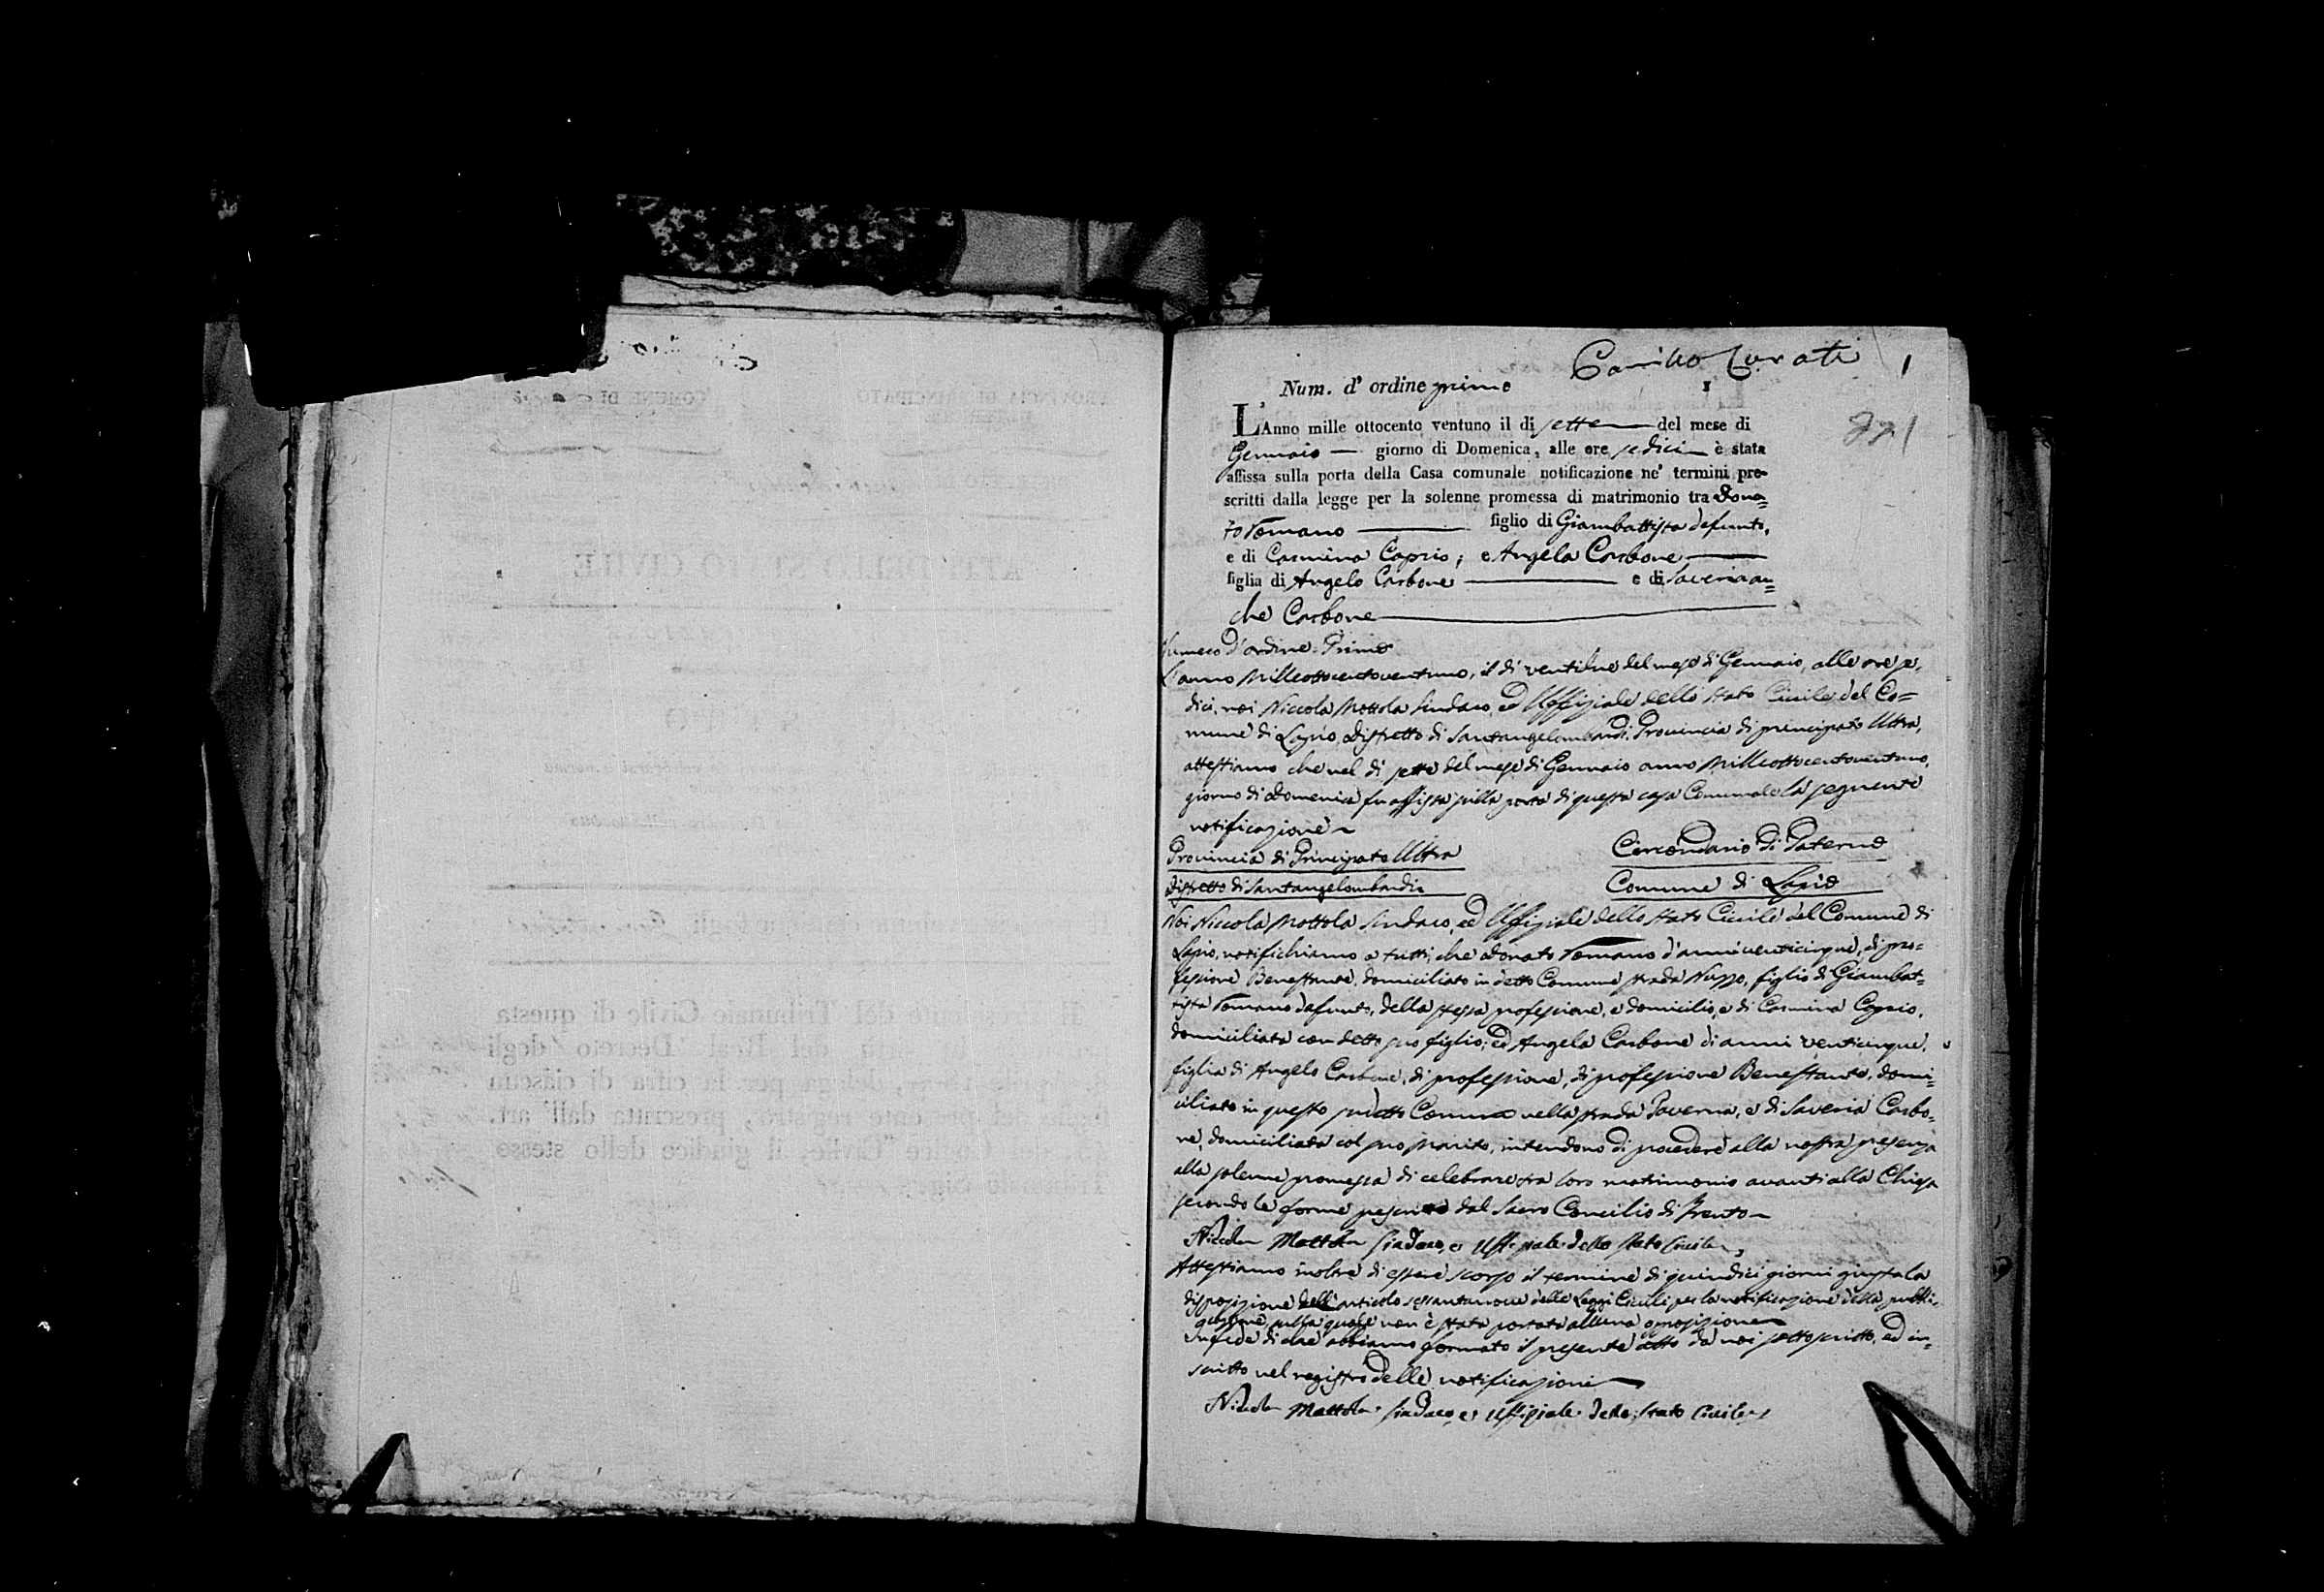 Camillo Curati 1
Num. d' ordine primo 1
L'Anno mille ottocento ventuno il di sette del mese di
Gennaio — giorno di Domenica, alle ore sedici è stata
affissa sulla porta della Casa comunale notificazione ne' termini pre-
scritti dalla legge per la solenne promessa di matrimonio tra Dona=
to Tomano figlio di Giambattista defunto,
e di Carmina Caprio; e Angela Carbone
figlia di Angelo Carbone e di Saveria an=
che Carbone
Numero d'ordine Primo
L'anno Milleottocentoventuno, il di ventidue del mese di Gennaio, alle ore se=
dici, noi Niccola Mottola Sindaco, ed Uffiziale dello stato Civile del Co=
mune di Lapio, Distretto di Santangelombardi, Provincia di principato Ultra,
attestiamo che nel di sette del mese di Gennaio anno Milleottocentoventuno,
giorno di Domenica fu affissa sulla porta di questa casa Comunale la seguente
notificazione
Provincia di Principato Ultra Circondario di Paterno
Distretto di Santangelombardi Comune di Lapio
Noi Niccola Mottola Sindaco, ed Uffiziale dello stato Civile del Comune di
Lapio, notifichiamo a tutti, che Donato Tomano d'anni venticinque, di pro=
fessione Benestante, domiciliato in detto Comune strada Nuzzo, figlio di Giambat=
tista Tomano defunto, della stessa professione, e domicilio, e di Carmina Caprio,
domiciliata con detto suo figlio; ed Angela Carbone di anni venticinque,
figlia di Angelo Carbone, di professione, di professione Benestante, domi=
ciliato in questo sudetto Comune nella strada Taverna, e di Saveria Carbo=
ne, domiciliata col suo marito, intendono di procedere alla nostra presenza
alla solenne promessa di celebrare tra loro matrimonio avanti alla Chiesa
secondo le forme prescritte dal Sacro Concilio di Trento
Niccola Mottola Sindaco, e Uffiziale dello stato Civile
Attestiamo inoltre di essere scorso il termine di quindici giorni giusta la
disposizione dell'articolo sessantanove delle Leggi Civili per la notificazione della pubbli=
cazione, sulla quale non è stata portata alcuna opposizione
In fede di che abbiamo formato il presente atto da noi sottoscritto, ed in=
scritto nel registro delle notificazioni
Niccola Mottola Sindaco, e Uffiziale dello Stato Civile